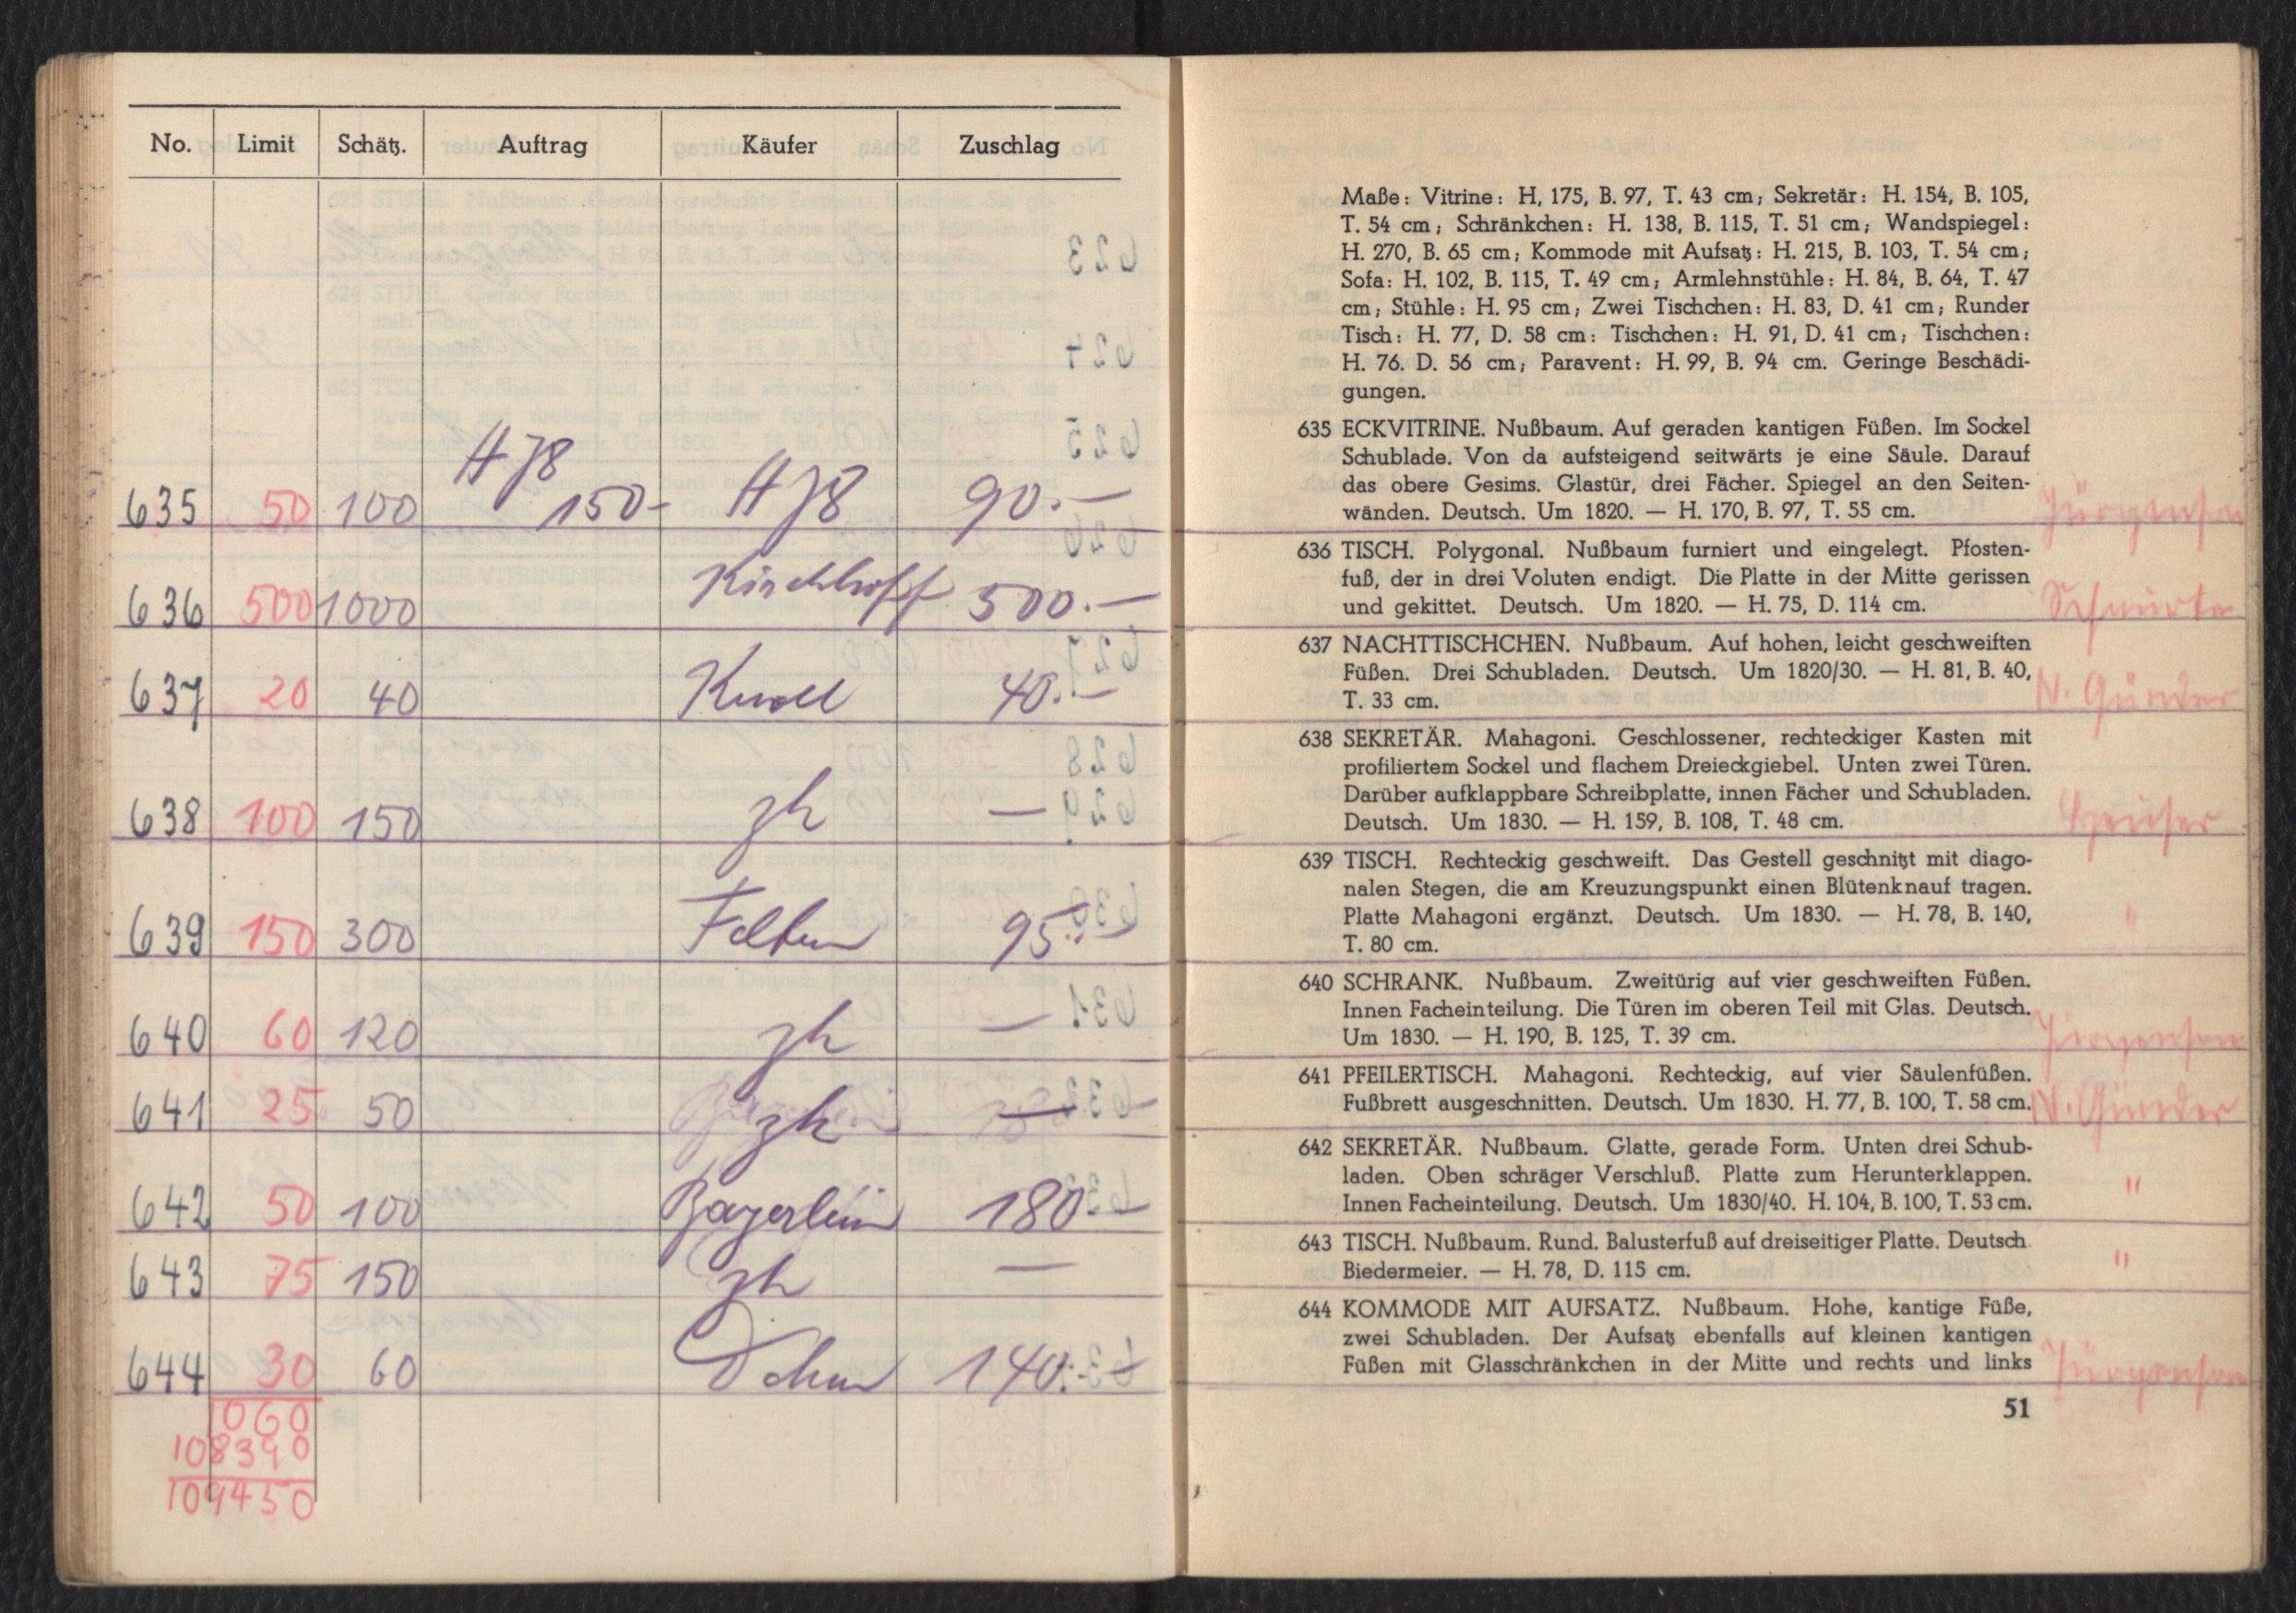 No. Limit Schätz. Auftrag Käufer Zuschlag
635 50 100 150- 90.—
636 500 1000 Kirchhoff 500.—
637 20 40 Knoll 40.—
638 100 150 zh —
639 150 300 Felten 95.—
640 60 120 zh —
641 25 50 zh —
642 50 100 Bayerlein 180.—
643 75 150 zh —
644 30 60 140.—
1060
108390
109450
Maße: Vitrine: H, 175, B. 97, T. 43 cm; Sekretär: H. 154, B. 105,
T. 54 cm; Schränkchen: H. 138, B. 115, T. 51 cm; Wandspiegel:
H. 270, B. 65 cm; Kommode mit Aufsatz: H. 215, B. 103, T. 54 cm;
Sofa: H. 102, B. 115, T. 49 cm; Armlehnstühle: H. 84, B. 64, T. 47
cm; Stühle: H. 95 cm; Zwei Tischchen: H. 83, D. 41 cm; Runder
Tisch: H. 77, D. 58 cm: Tischchen: H. 91, D. 41 cm; Tischchen:
H. 76. D. 56 cm; Paravent: H. 99, B. 94 cm. Geringe Beschädi-
gungen.
635 ECKVITRINE. Nußbaum. Auf geraden kantigen Füßen. Im Sockel
Schublade. Von da aufsteigend seitwärts je eine Säule. Darauf
das obere Gesims. Glastür, drei Fächer. Spiegel an den Seiten-
wänden. Deutsch. Um 1820. — H. 170, B. 97, T. 55 cm. Jürgensen
636 TISCH. Polygonal. Nußbaum furniert und eingelegt. Pfosten-
fuß, der in drei Voluten endigt. Die Platte in der Mitte gerissen
und gekittet. Deutsch. Um 1820. — H. 75, D. 114 cm.
637 NACHTTISCHCHEN. Nußbaum. Auf hohen, leicht geschweiften
Füßen. Drei Schubladen. Deutsch. Um 1820/30. — H. 81, B. 40,
T. 33 cm. N. Günder
638 SEKRETÄR. Mahagoni. Geschlossener, rechteckiger Kasten mit
profiliertem Sockel und flachem Dreieckgiebel. Unten zwei Türen.
Darüber aufklappbare Schreibplatte, innen Fächer und Schubladen.
Deutsch. Um 1830. — H. 159, B. 108, T. 48 cm.
639 TISCH. Rechteckig geschweift. Das Gestell geschnitzt mit diago-
nalen Stegen, die am Kreuzungspunkt einen Blütenknauf tragen.
Platte Mahagoni ergänzt. Deutsch. Um 1830. — H. 78, B. 140, "
T. 80 cm.
640 SCHRANK. Nußbaum. Zweitürig auf vier geschweiften Füßen.
Innen Facheinteilung. Die Türen im oberen Teil mit Glas. Deutsch.
Um 1830. — H. 190, B. 125, T. 39 cm. Jürgensen
641 PFEILERTISCH. Mahagoni. Rechteckig, auf vier Säulenfüßen.
Fußbrett ausgeschnitten. Deutsch. Um 1830. H. 77, B. 100, T. 58 cm. N. Günder
642 SEKRETÄR. Nußbaum. Glatte, gerade Form. Unten drei Schub-
laden. Oben schräger Verschluß. Platte zum Herunterklappen. "
Innen Facheinteilung. Deutsch. Um 1830/40. H. 104, B. 100, T. 53 cm.
643 TISCH. Nußbaum. Rund. Balusterfuß auf dreiseitiger Platte. Deutsch.
Biedermeier. — H. 78, D. 115 cm. "
644 KOMMODE MIT AUFSATZ. Nußbaum. Hohe, kantige Füße,
zwei Schubladen. Der Aufsatz ebenfalls auf kleinen kantigen
Füßen mit Glasschränkchen in der Mitte und rechts und links Jürgensen
51